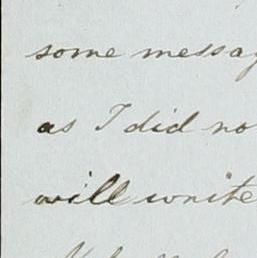 some messag
as I did no
will write